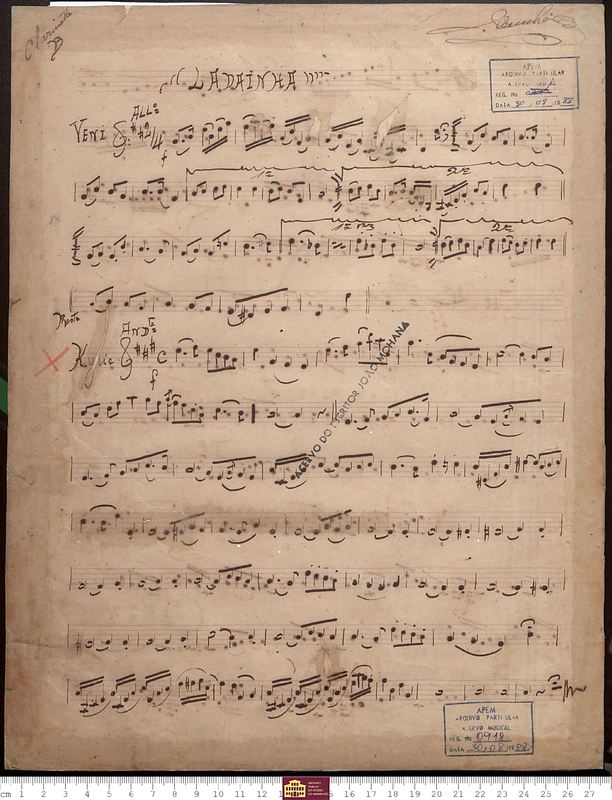 Clarineta
B
LADAINHA
APEM
ARQUIVO PARTICULAR
REG. No
DATA 30 08 1988
VENI ALLº 2/4
f
1ª 2ª
1ª vez 2ª
Kyrie ANDᵗᵉ C
f
ACERVO DO ESCRITOR JOÃO MOHANA
APEM
ARQUIVO PARTICULAR
ACERVO MUSICAL
REG. No 0918
DATA 30.08.1988
cm 1 2 3 4 5 6 7 8 9 10 11 12 13 14 15 16 17 18 19 20 21 22 23 24 25 26 27